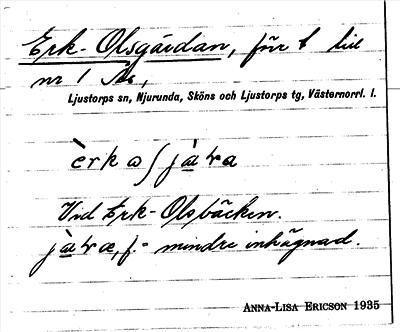 Erk-Olsgärdan, för t till
nr 1
Ljustorps sn, Njurunda, Sköns och Ljustorps tg, Västernorrl. l.
Vid Erk-Olsbäcken.
f. = mindre inhägnad.
ANNA-LISA ERICSON 1935